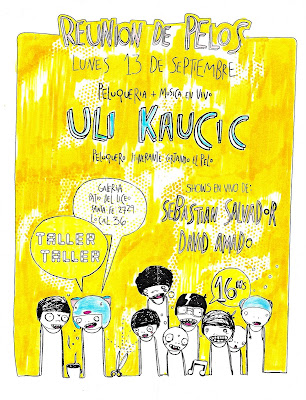 REUNION DE PELOS
LUNES 13 DE SEPTIEMBRE
PELUQUERIA + MUSICA EN VIVO
ULI KAUCIC
PELUQUERO ITINERANTE CORTANDO EL PELO
GALERIA
PATIO DEL LICEO
SANTA FE 2729
LOCAL 36
TALLER
TALLER
SHOWS EN VIVO DE:
SEBASTIAN SALVADOR
DAVID AMADO
16HS